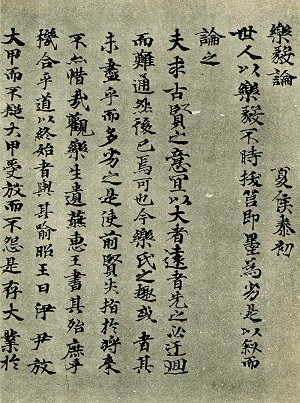 樂毅論 夏侯泰初
世人以樂毅不時拔筥即墨為劣是以叙而
論之
夫求古賢之意宜以大者遠者先之必迂迴
而難通然後已焉可也今樂氏之趣或者其
未盡乎而多劣之是使前賢失指於將來
不亦惜哉觀樂生遺燕惠王書其殆庶乎
機合乎道以終始者與其喻昭王曰伊尹放
大甲而不疑大甲受放而不怨是存大業於